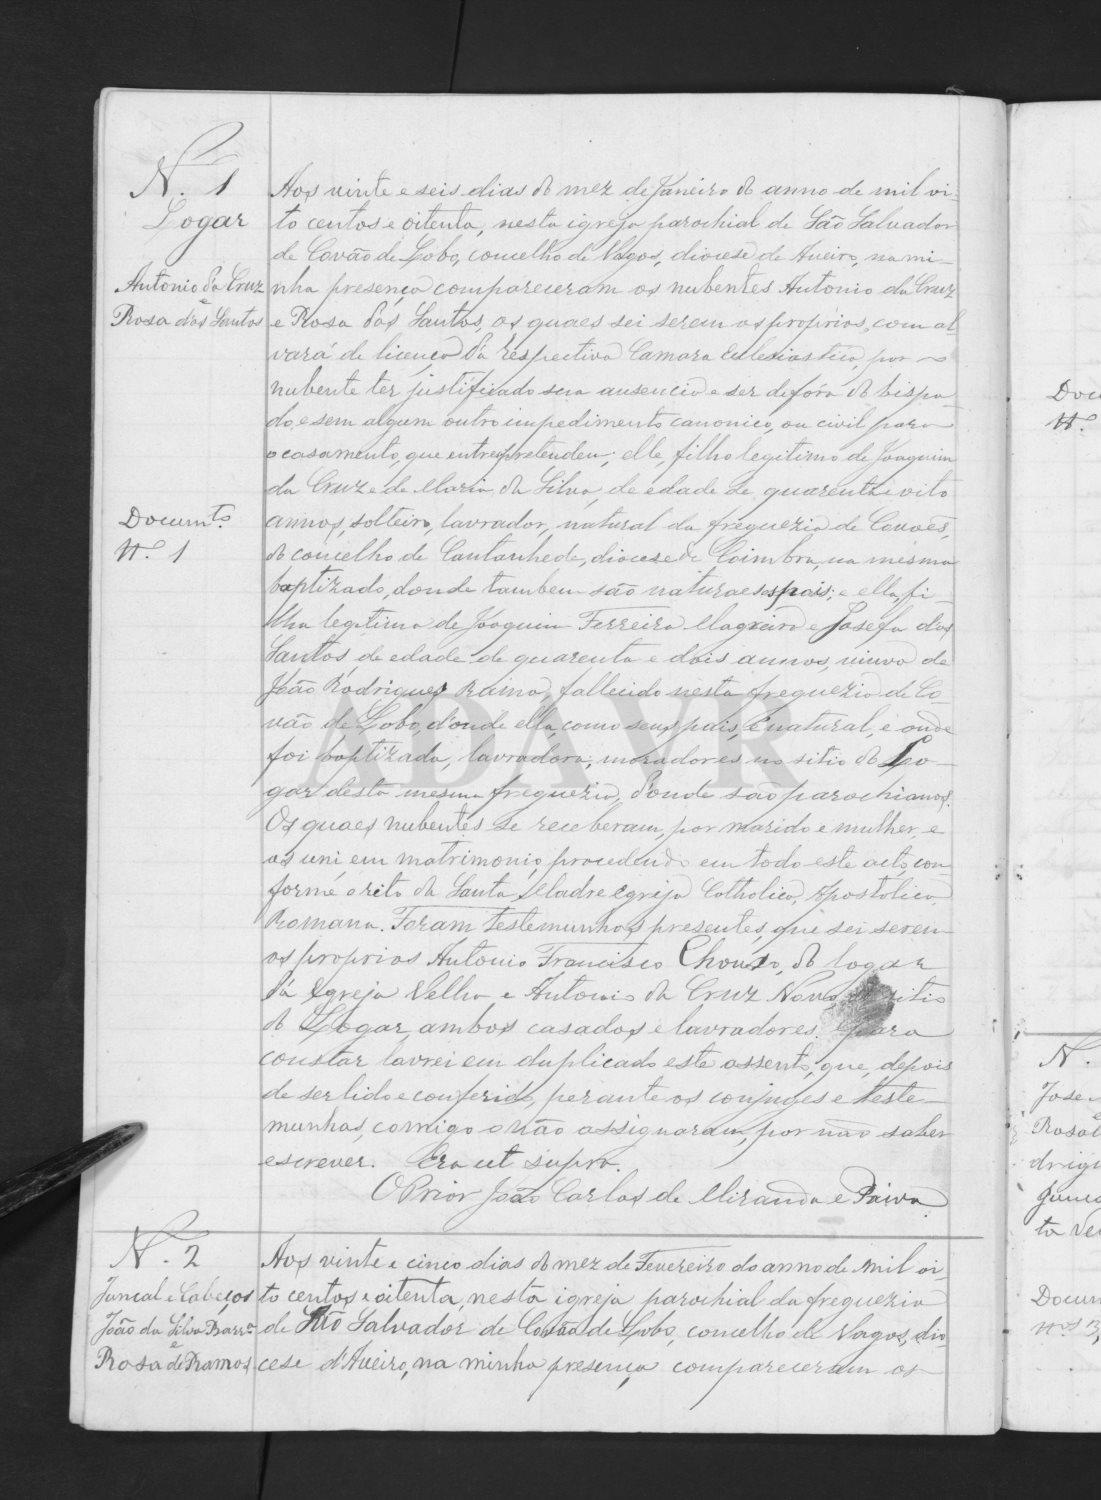 N. 1
Logar
Antonio da Cruz
e
Rosa dos Santos
Aos vinte e seis dias do mez de Janeiro do anno de mil oi-
to centos e oitenta, nesta igreja parochial de São Salvador
de Covão de Lobo, concelho de Vagos, diocese de Aveiro, na mi-
nha presença compareceram os nubentes Antonio da Cruz
e Rosa dos Santos, os quaes sei serem os proprios, com al-
vará de licença da respectiva Camara Ecclesiastica, por o
nubente ter justificado sua ausencia e ser de fóra do bispa-
do, e sem algum outro impedimento canonico, ou civil para
o casamento, que entre pretendem; elle, filho legitimo de Joaquim
da Cruz e de Maria da Silva, de edade de quarenta e oito
annos, solteiro, lavrador, natural da freguezia de Covões,
do concelho de Cantanhede, diocese de Coimbra, na mesma
baptizado, donde tambem são naturaes paes; e ella, fi-
lha legitima de Joaquim Ferreira e Josefa dos
Santos, de edade de quarenta e dois annos, viuva de
João Rodrigues Raino, fallecido nesta freguezia de Co-
vão de Lobo, d'onde ella, como seus pais, é natural, e onde
foi baptizada, lavradora, moradores no sitio do Lo-
gar desta mesma freguezia, d'onde são parochianos.
Os quaes nubentes se receberam, por marido e mulher, e
os uni em matrimonio, procedendo em todo este acto, con-
forme o rito da Santa Madre Egreja Catholica, Apostolica,
Romana. Foram testemunhas presentes, que sei serem
os proprios Antonio Francisco do logar
da Egreja Velha e Antonio da Cruz Novo, sitio
do Logar, ambos casados e lavradores. E para
constar lavrei em duplicado este assento, que, depois
de ser lido e conferido, perante os conjuges e teste-
munhas, comigo o não assignaram, por não saber
escrever. Era ut supra.
O Prior João Carlos de Miranda e Paiva
Documto
N.o 1
N. 2
Juncal e Cabeços
João da Silva Barro
e
Rosa de Ramos
Aos vinte e cinco dias do mez de Fevereiro do anno de mil oi-
to centos e oitenta, nesta igreja parochial da freguezia
de São Salvador de Covão de Lobo, concelho de Vagos, dio-
cese d'Aveiro, na minha presença compareceram os
ADAVR
Docu
N.o
N.
Jose
e
Rosa
drigu
ta Ve
Docum
N.os 3,